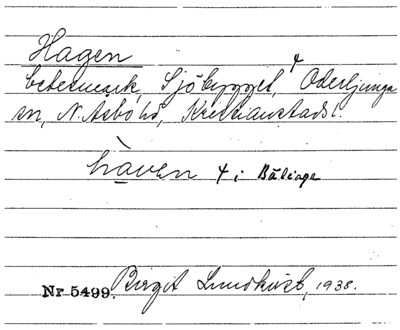 Hagen
betesmark, Sjöbygget, 4 Oderljunga
sn, N. Åsbo hd, Kristianstads l.
håven 4 i Bälinge
Nr 5499. Birgit Lundkvist, 1938.